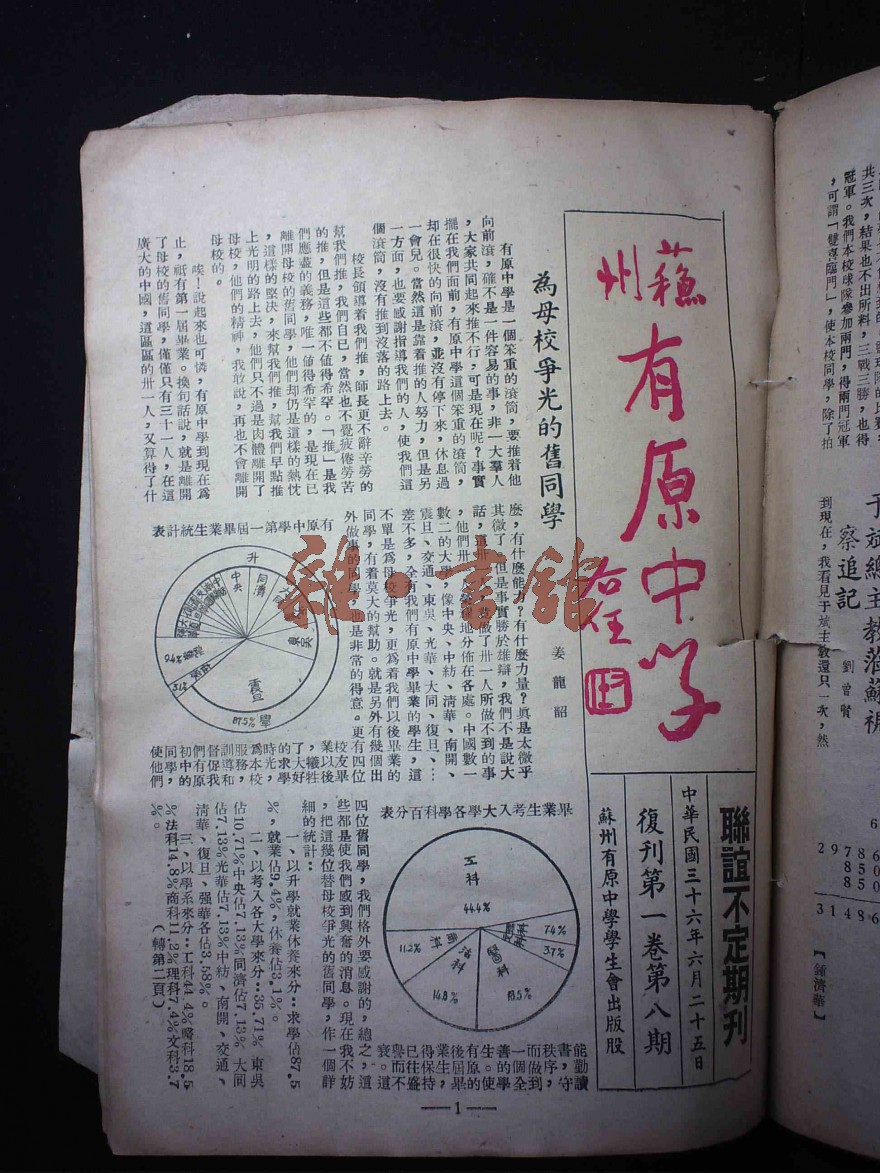 蘇州
有原中学
聯誼不定期刊
中華民國三十六年六月二十五日
復刊第一卷第八期
蘇州有原中學學生會出版股
為母校爭光的舊同學
姜龍韶
有原中學是一個笨重的滾筒，要推着他
向前滾，確不是一件容易的事，非一大羣人
，大家共同起來推不行；可是現在呢？事實
擺在我們面前，有原中學這個笨重的滾筒，
却在很快的向前滾，並沒有停下來，休息過
一會兒。當然這是靠着推的人努力，但是另
一方面，也要感謝指導我們的人，使我們這
個滾筒，沒有推到沒落的路上去。
校長領導着我們推，師長更不辭辛勞的
幫我們推，我們自已，當然也不覺疲倦勞苦
的推，但是這些都不値得希罕。「推」是我
們應盡的義務，唯一値得希罕的，是現在已
離開母校的舊同學，他們却仍是這樣的熱忱
，這樣的堅决，來幫我們推，幫我們早點推
上光明的路上去，他們只不過是肉體離開了
母校，他們的精神，我敢說，再也不會離開
母校的。
唉！說起來也可憐，有原中學到現在爲
止，祇有第一屆畢業。換句話說，就是離開
了母校的舊同學，僅僅只有三十一人，在這
廣大的中國，這區區的卅一人，又算得了什
麽，有什麽能力？有什麽力量？眞是太微乎
其微了。但是事實勝於雄辯，我們不是說大
話，這卅一人，做了卅一人所做不到的事
，他們卅一人榮地分佈在各處。中國數一
數二的大學，像中央、中紡、淸華、南開、
震旦、交通、東吳、光華、大同、復旦、…
差不多，全有我們有原中學畢業的學生，這
不單是爲母校爭光，更爲着我們以後畢業的
同學，有着莫大的幫助。就是另外有幾個出
外做事的同學，也是非常的得意。更有四位
校友畢
業以後
，犧牲
了大好
的求學
時光，
爲本校
服務，
訓導和
督促我
們有原
初中的
同學，
使他們
能勤讀
書，守
秩序，
而做到
一個全
善的學
生。使
有原的
後屆畢
業生，
得保持
已往盛
譽而不
衰。這
四位舊同學，我們格外要感謝的，總之，這
些都是使我們感到興奮的消息。現在我不妨
，把這幾位替母校爭光的舊同學，作一個詳
細的統計：
一、以升學就業休養來分：求學佔87.5
%，就業佔9.4%，休養佔3.1%。
二、以考入各大學來分：35.71% 東吳
佔10.71%中央佔7.13%同濟佔7.13% 大同
佔7.13%光華佔7.13%中紡、南開、交通、
淸華、復旦、强華各佔3.58%。
三、以學系來分：工科44.4%醫科18.5
%法科14.8%商科11.3%理科7.4%文科3.7
%。（轉第二頁）
有原中學第一屆畢業生統計表
升
學
87.5%
震旦
東吳
同濟
中央
9.4%
3.1%
畢業生考入大學各學科百分表
工科
44.4%
7.4%
3.7%
醫科
18.5%
法科
14.8%
商科
11.2%
—1—
雜·書舘
共三次，結果也不出所料，三戰三勝，也得
冠軍。我們本校球隊參加兩門，得兩門冠軍
，可謂「雙喜臨門」，使本校同學，除了拍
于斌總主教蒞蘇視
察追記
劉曾賢
到現在，我看見于斌主敎還只一次，然
29786
850
850
31486
【鍾濟華】